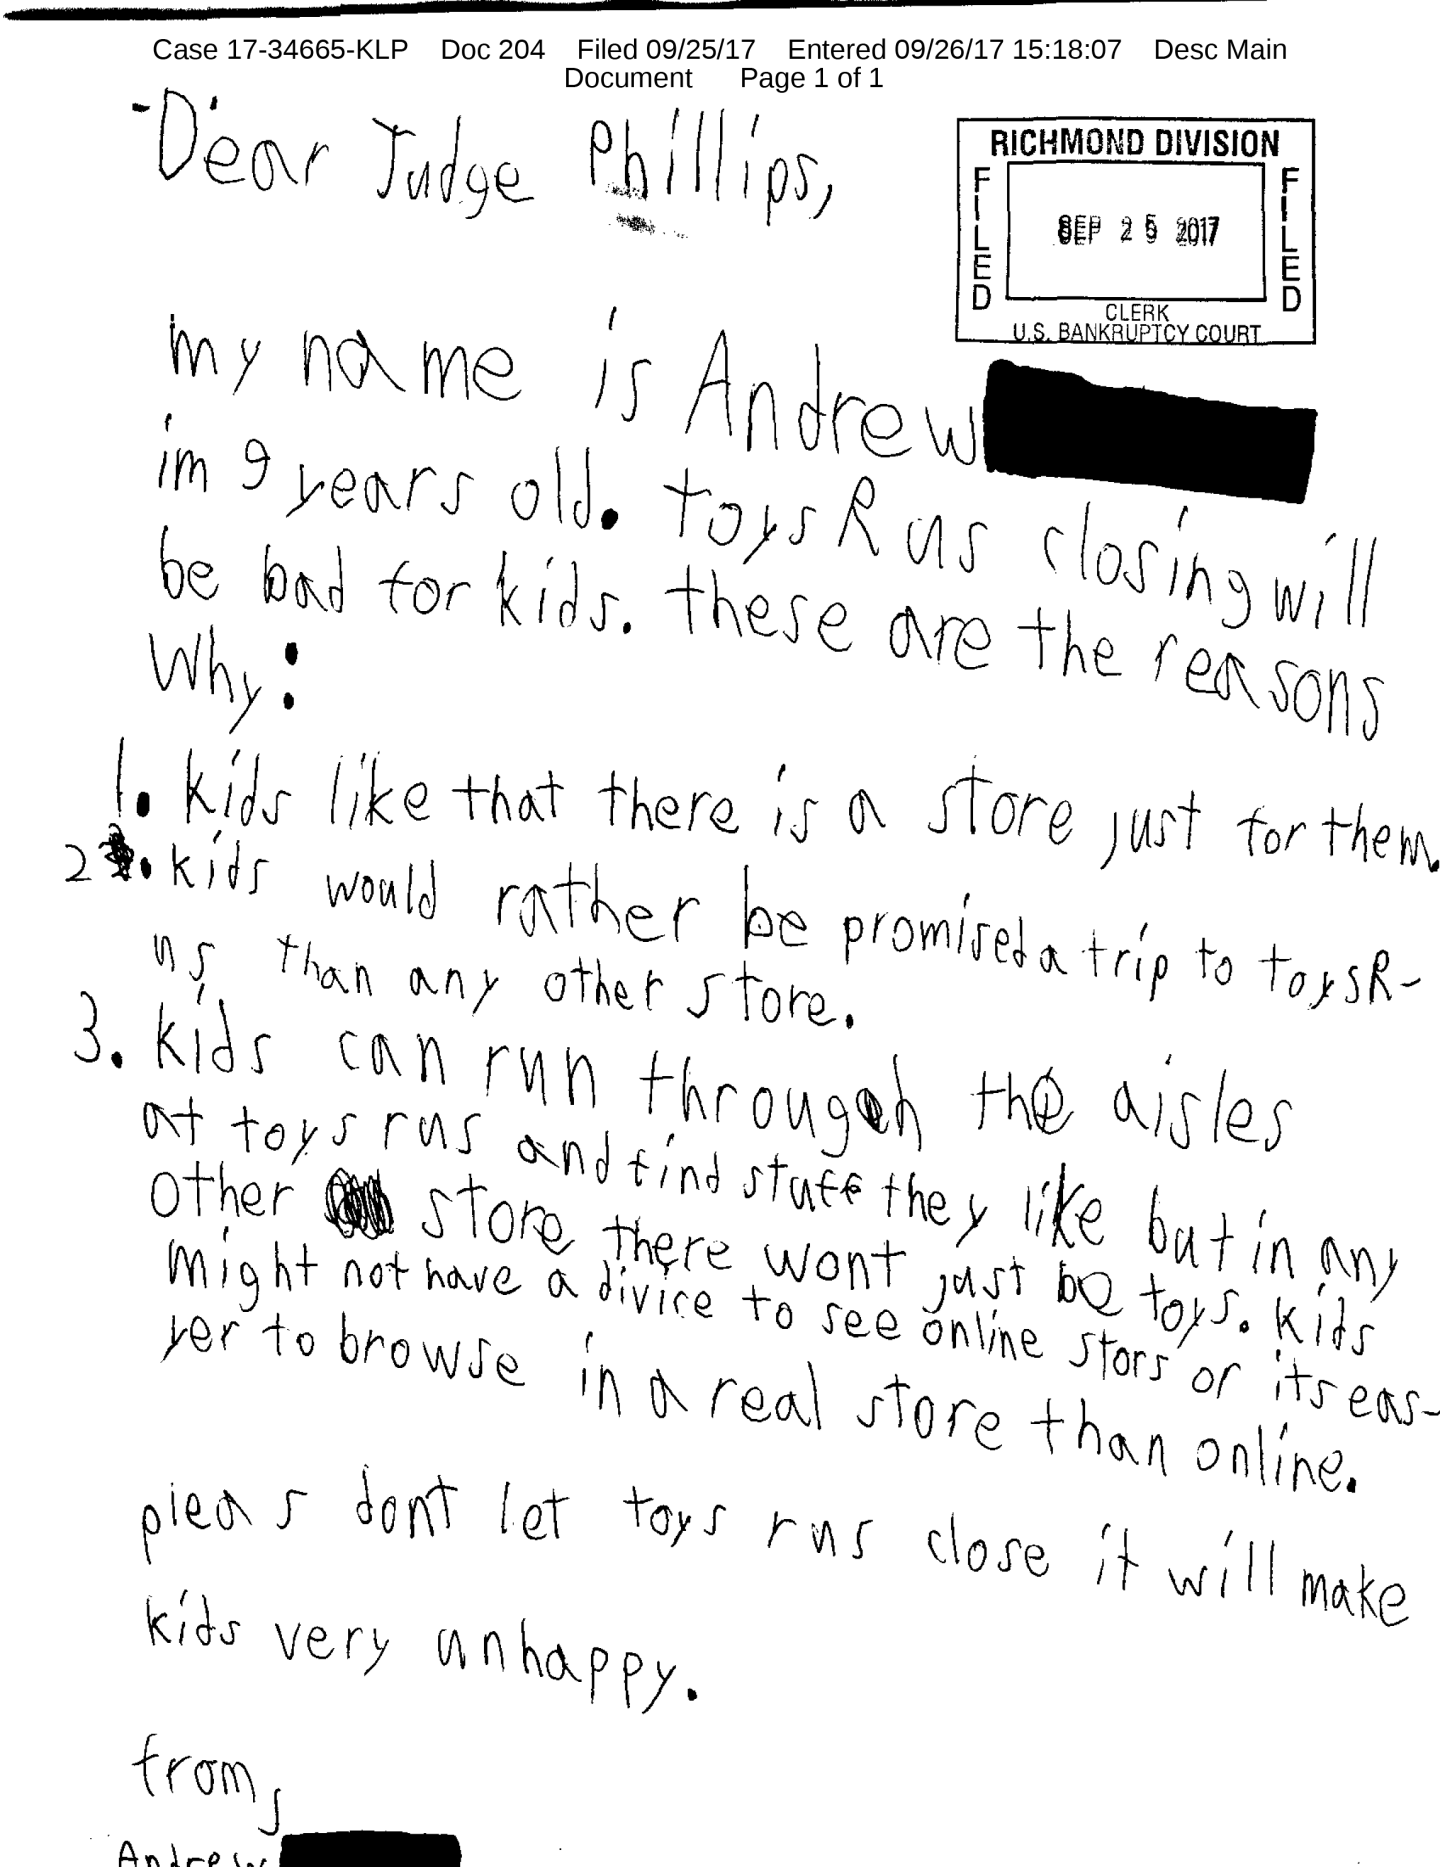 Case 17-34665-KLP Doc 204 Filed 09/25/17 Entered 09/26/17 15:18:07 Desc Main
Document Page 1 of 1
Dear Judge Phillips,
RICHMOND DIVISION
FILED
SEP 25 2017
FILED
CLERK
U.S. BANKRUPTCY COURT
my name is Andrew
im 9 years old. toysRus closing will
be bad for kids. these are the reasons
Why:
1. kids like that there is a store just for them.
2. kids would rather be promised a trip to toysR-
us than any other store.
3. kids can run through the aisles
at toys rus and find stuff they like but in any
other store there wont just be toys. kids
might not have a divice to see online stors or its eas-
yer to browse in a real store than online.
pleas dont let toys rus close it will make
kids very unhappy.
from,
Andrew